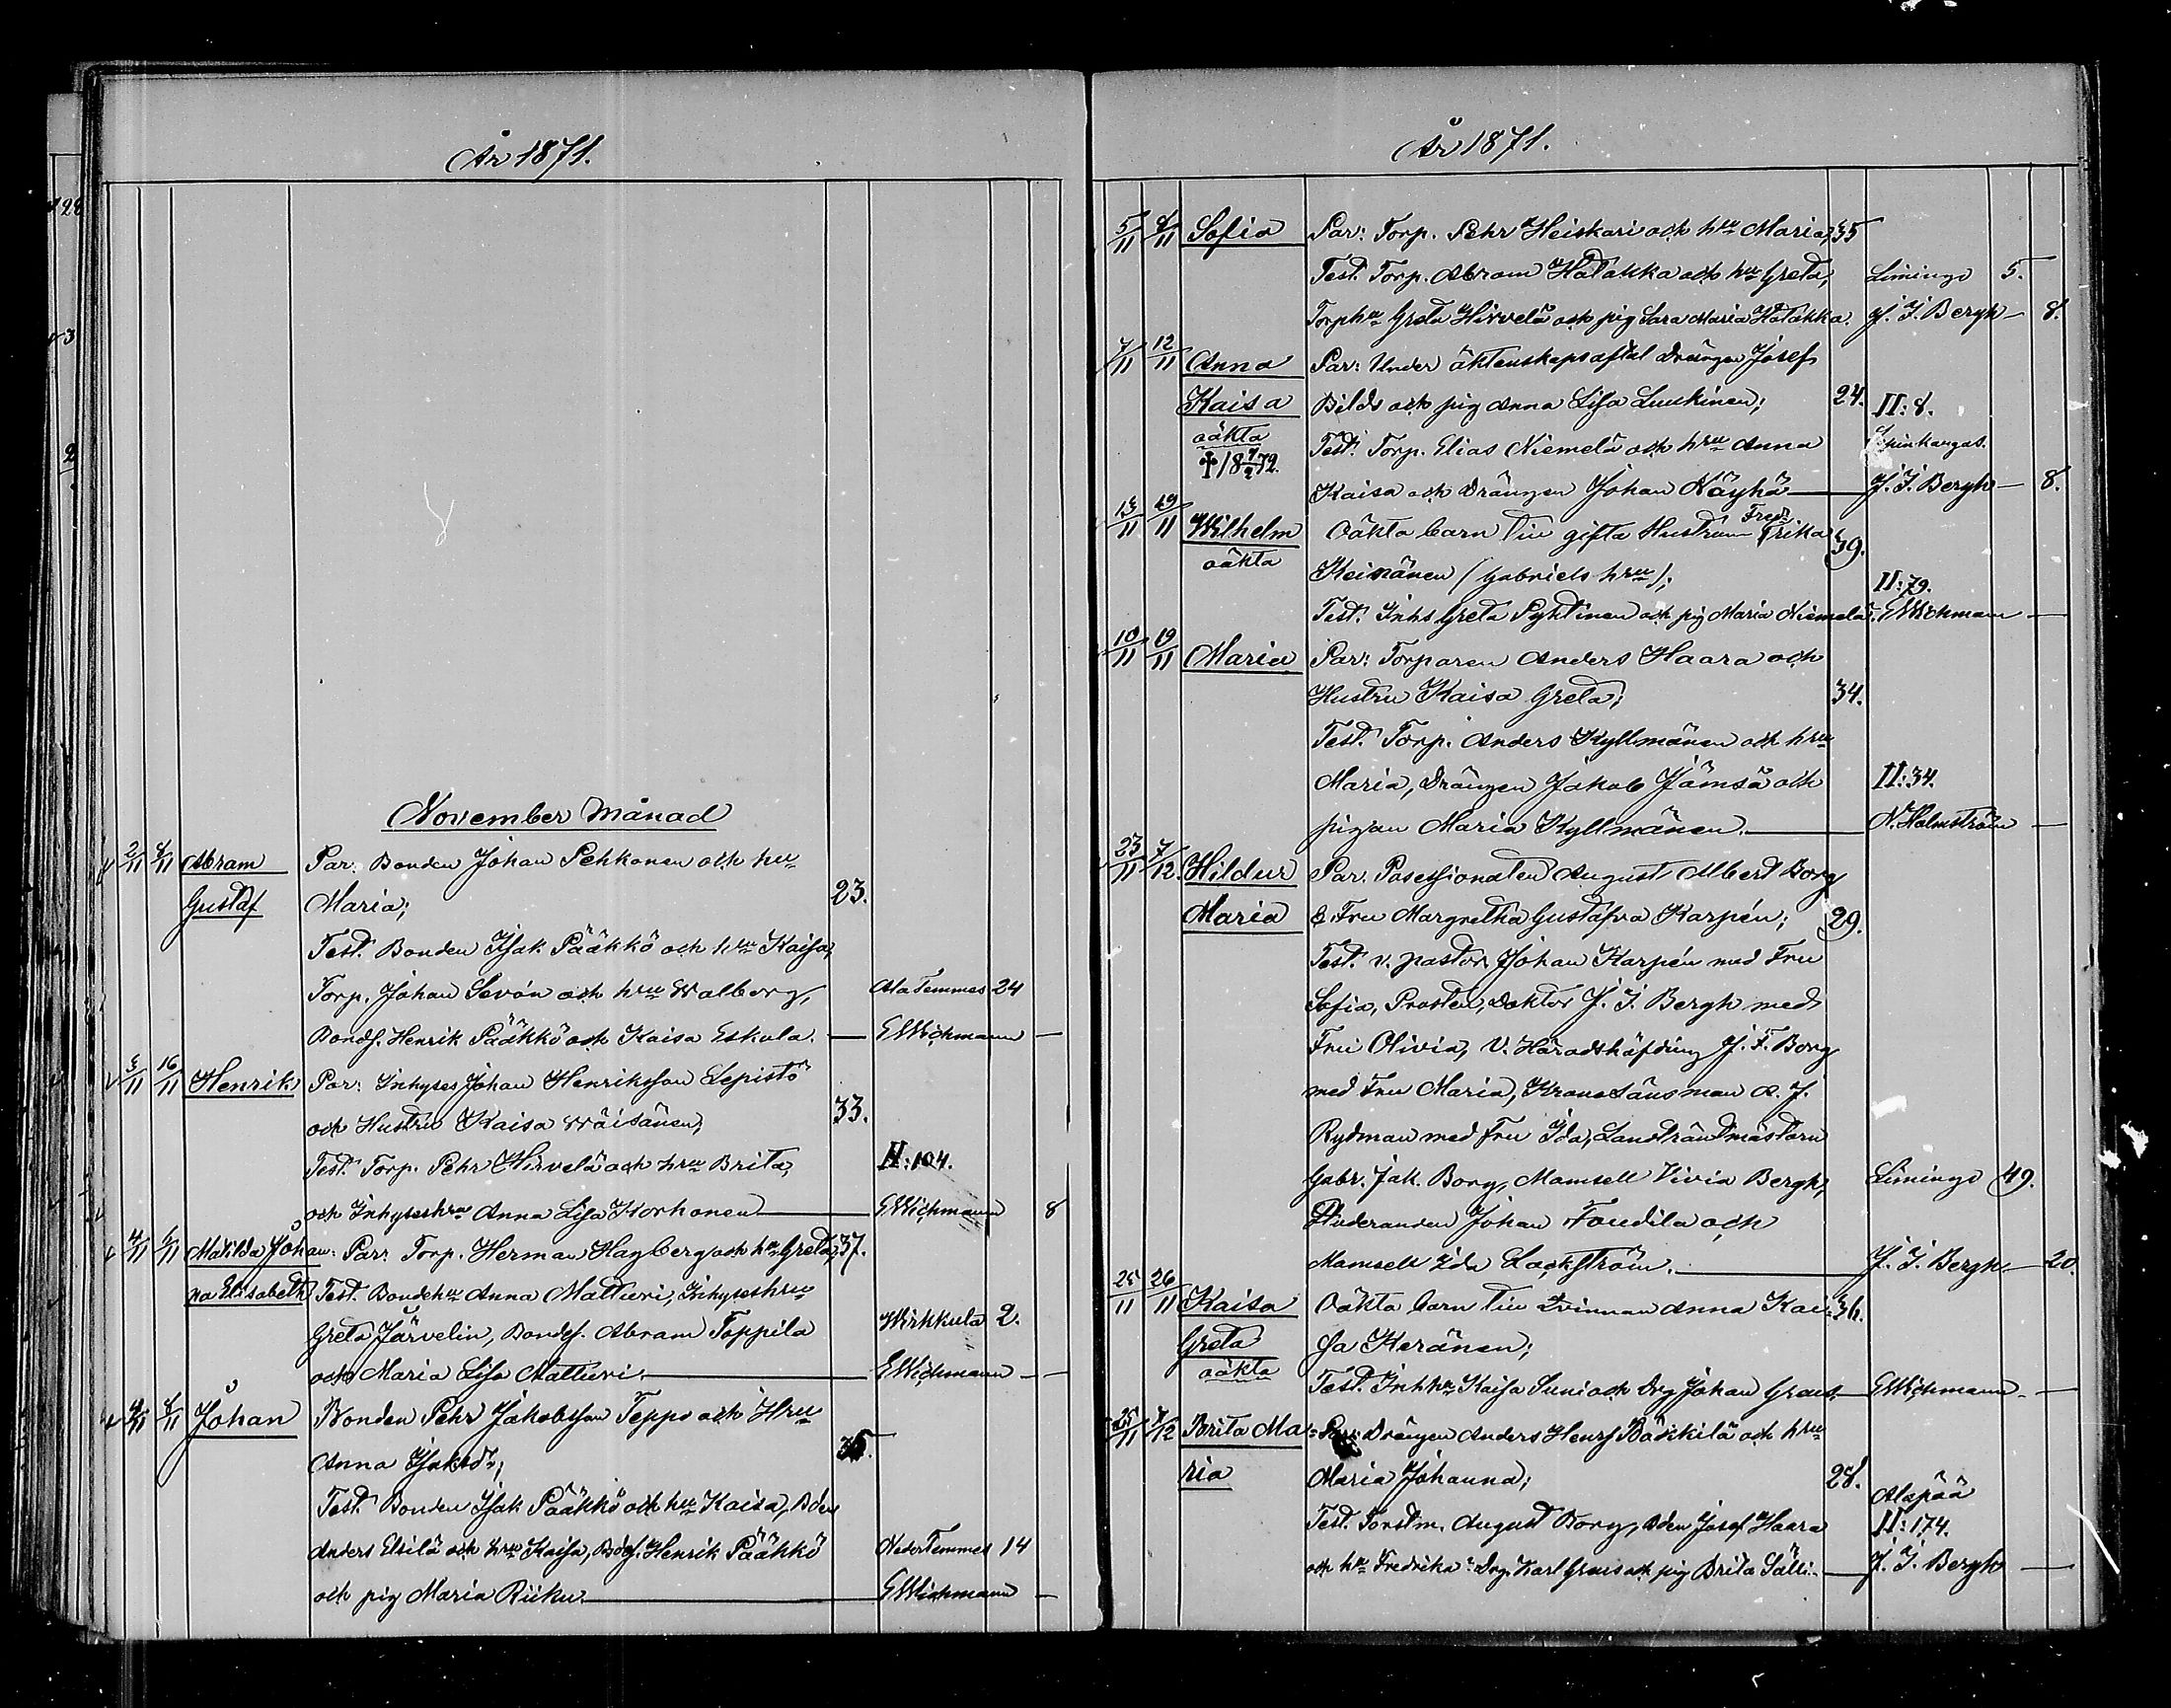 År 1871.
November Månad
2/11 4/11 Abram Par. Bonden Johan Pehkonen och hru
Gustaf Maria; 23.
Test. Bonden Isak Pääkkö och hru Kaisa,
Torp. Johan Sevón och hru Walborg, Ala Temmes 24
Bonds. Henrik Pääkkö och Kaisa Eskola. — EWichmann —
3/11 16/11 Henrik Par: Inhyses Johan Henriksson Lepistö
och Hustru Kaisa Wäisänen; 33.
Test. Torp. Pehr Hirvelä och hru Brita, II:104.
och Inhyseshru Anna Lisa Korhonen — EWichmann 8
4/11 5/11 Matilda Johan: Par: Torp. Herman Hagberg och hru Greta; 37.
na Elisabeth Test. Bondehu Anna Mattuvi, Inhyseshru
Greta Järvelin, Bonds. Abram Toppila Wirkkula 2.
och Maria Lisa Mattuvi. — EWichmann —
4/11 8/11 Johan Bonden Pehr Jakobsson Teppo och Hru
Anna Isaksdr; 35.
Test. Bonden Isak Pääkkö och hru Kaisa, Bden
Anders Elsilä och hru Kaisa, Bds. Henrik Pääkkö Neder Temmes 14
och pig Maria Riiku. — EWichmann —
År 1871.
5/11 8/11 Sofia Par: Torp. Pehr Heiskari och hru Maria; 35
Test. Torp. Abram Hätäkkä och hru Greta, Limingo 5.
Torphu Greta Hirvelä och pig Sara Maria Hätäkkä. J. J. Bergh — 8.
7/11 12/11 Anna Par: Under äktenskapsaftal Drängen Josef
Kaisa Bild och pig Anna Lisa Luukinen; 24. II:8.
oäkta Test. Torp. Elias Niemelä och hru Anna
† 18 72. Kaisa och Drängen Johan Näyhä — J. J. Bergh — 8.
13/11 19/11 Wilhelm Oäkta barn till gifta Hustrun Fredrika 39.
oäkta Keinänen (Gabriels hru); II:79.
Test. Inhs Greta Pyktinen och pig Maria Niemelä. EWichmann —
10/11 19/11 Maria Par: Torparen Anders Haara och
Hustru Kaisa Greta; 34.
Test. Torp. Anders Kyllmänen och hru
Maria, Drängen Jakob Jämsä och II:34.
pigan Maria Kyllmänen. — N. Holmström —
23/11 7/12. Hildur Par. Possessionaten August Albert Borg
Maria & Fru Margretha Gustafva Karpén; 29.
Test. v. pastor Johan Karpén med Fru
Sofia, Prosten, Doktor J. J. Bergh med
Fru Olivia, V. Häradshöfding J. F. Borg
med Fru Maria, Kronolänsman A. J.
Rydman med Fru Ida, Landträntmästarn
Gabr. Jak. Borg, Mamsell Vivia Bergh, Limingo 49.
Studeranden Johan Foudila och
Mamsell Ida Lackström. — J. J. Bergh — 20.
25/11 26/11 Kaisa Oäkta barn till Qvinnan Anna Kai- 36.
Greta sa Keränen;
oäkta Test. Inhhu Kaisa Suni och Drg Johan Graus. — EWichmann. —
25/11 7/12 Brita Ma= Par: Drängen Anders Henrs Bäkkilä och hru
ria Maria Johanna; 28. Alapää
Test. Forstm. August Borg, Bden Josef Haara II:174.
och hru Fredrika: Drg. Karl Graus och pig Brita Sälli. — J. J. Bergh —